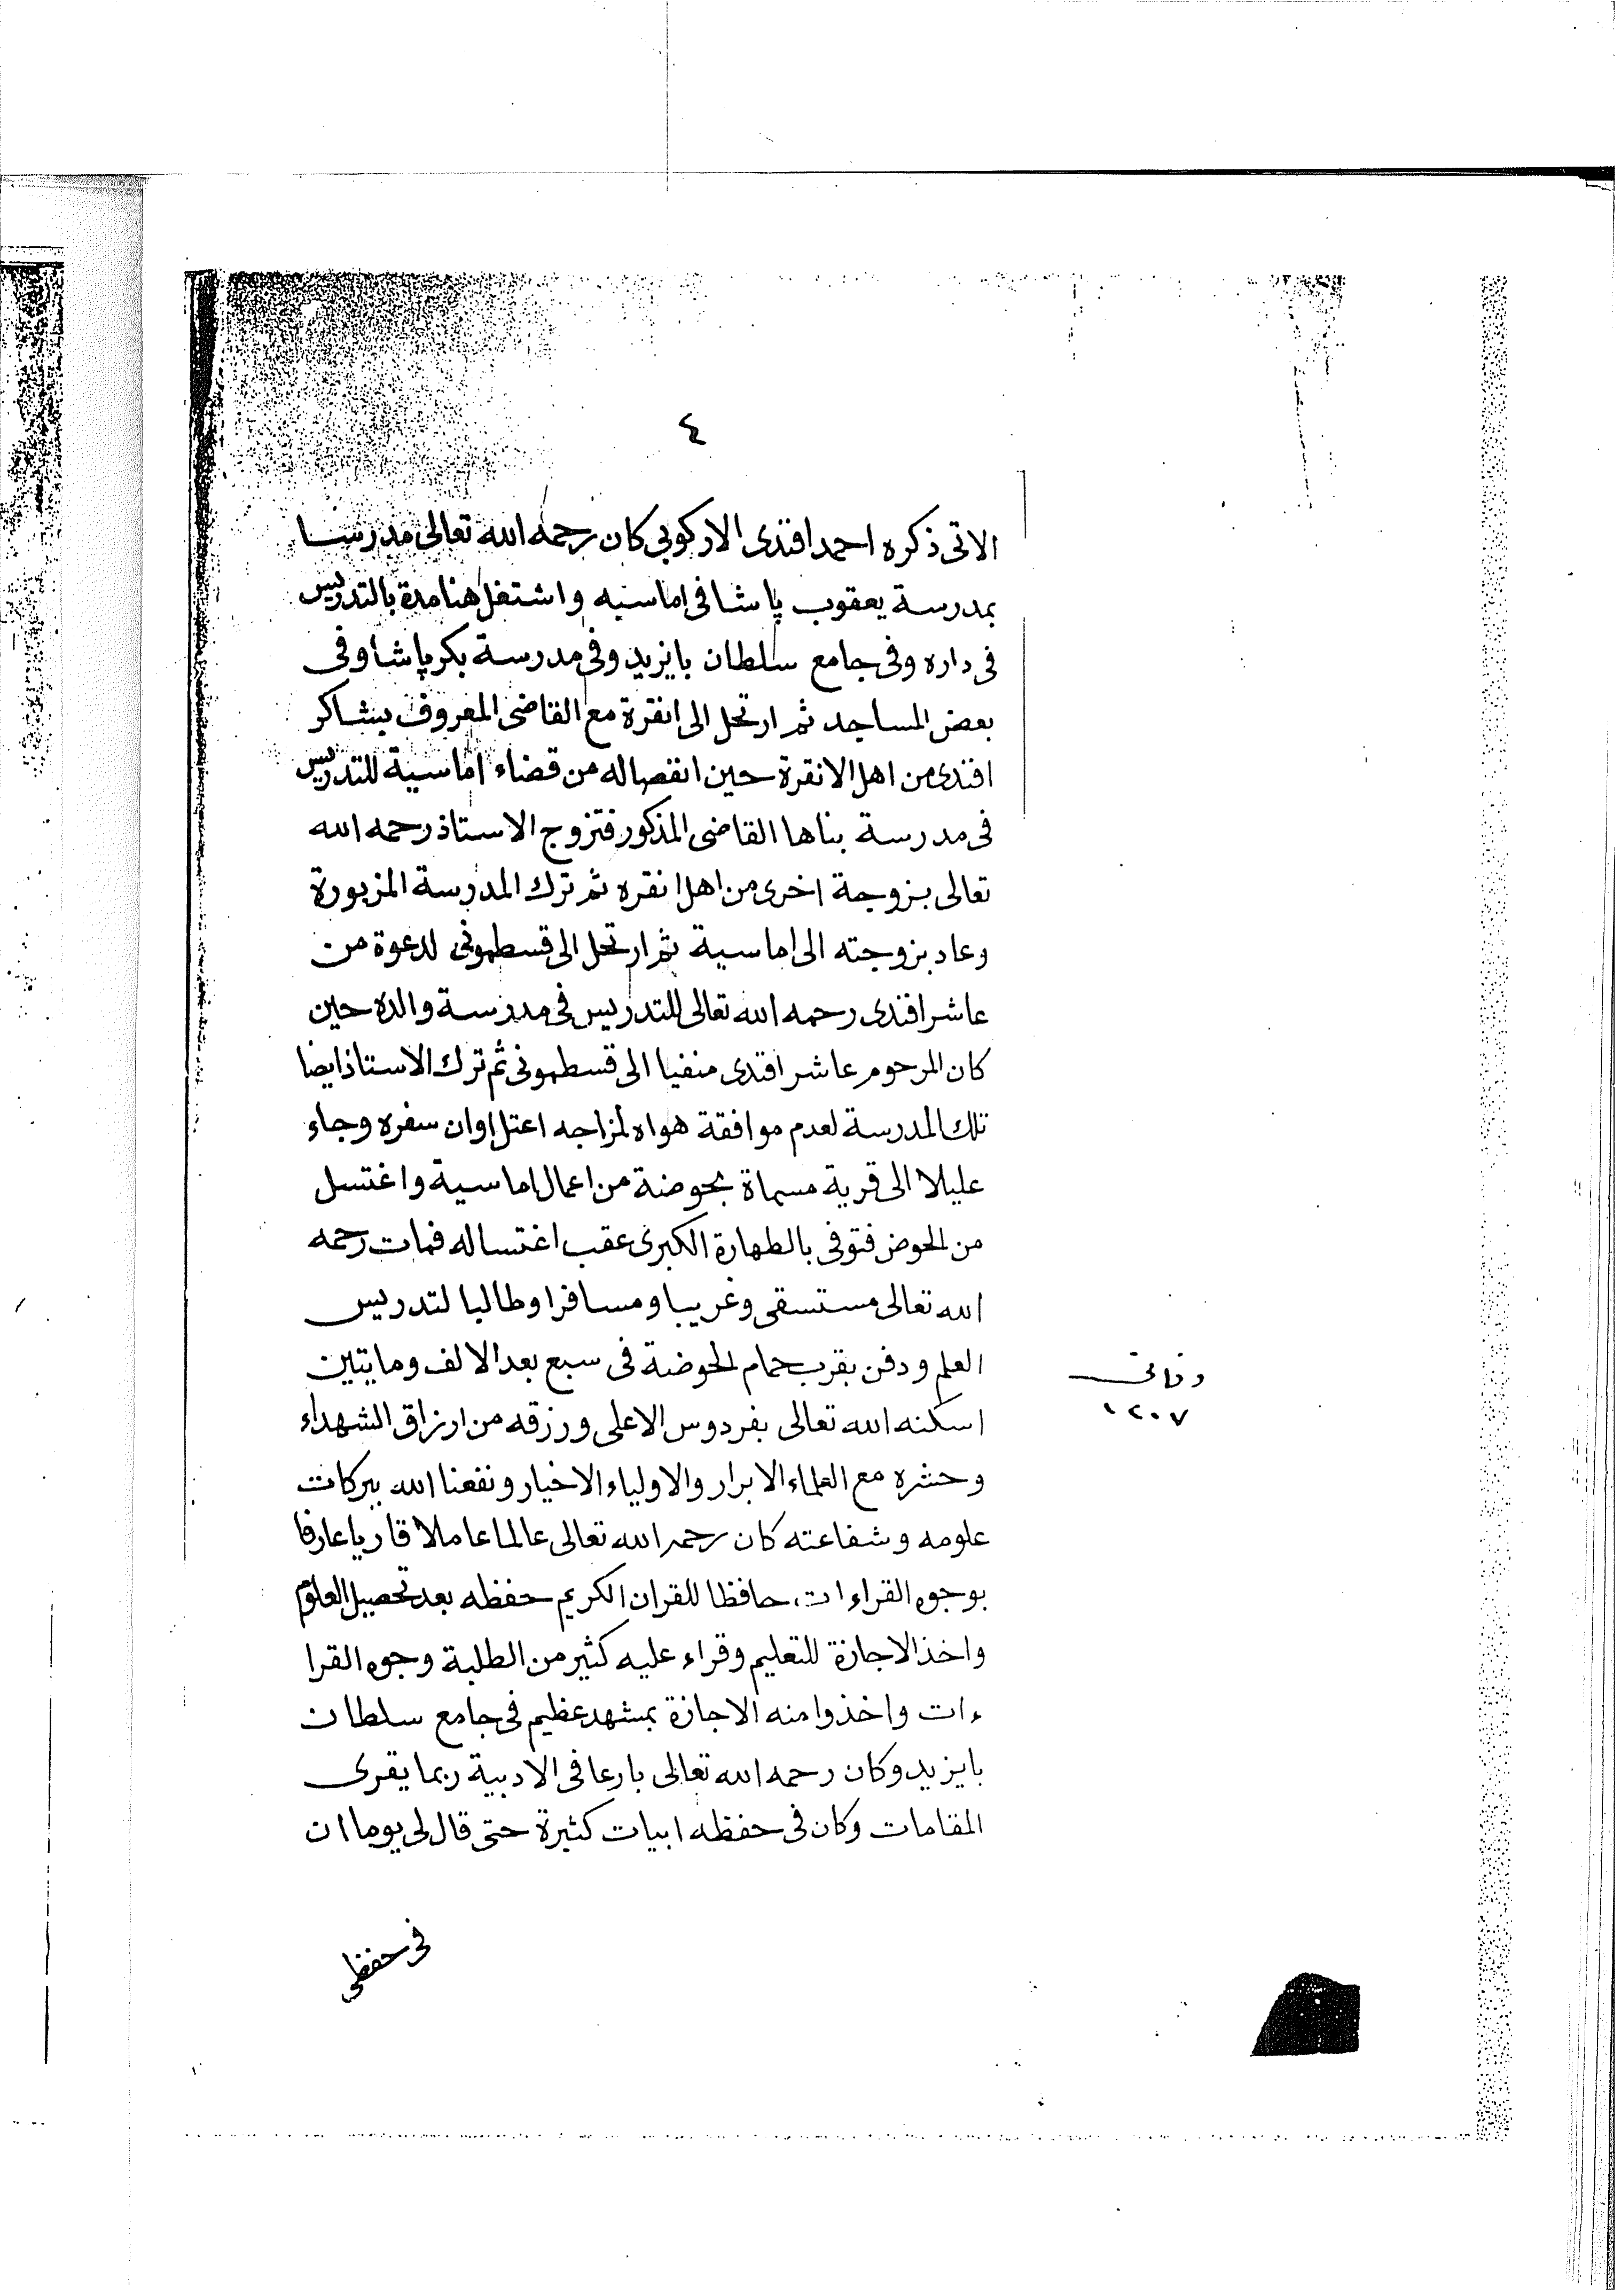 ٤
الاتى ذكره احمد افندى الاركوبى كان رحمه الله تعالى مدرسا
بمدرسة يعقوب پاشا فى اماسيه واشتغل هنا مدة بالتدريس
فى داره وفى جامع سلطان بايزيد وفى مدرسة بكر پاشا وفى
بعض المساجد ثم ارتحل الى انقرة مع القاضى المعروف بشاكر
افندى من اهل الانقرة حين انفصاله من قضاء اماسية للتدريس
فى مدرسة بناها القاضى المذكور فتزوج الاستاذ رحمه الله
تعالى بزوجة اخرى من اهل انقره ثم ترك المدرسة المزبورة
وعاد بزوجته الى اماسية ثم ارتحل الى قسطمونى لدعوة من
عاشر افندى رحمه الله تعالى للتدريس فى مدرسة والده حين
كان المرحوم عاشر افندى منفيا الى قسطمونى ثم ترك الاستاذ ايضا
تلك المدرسة لعدم موافقة هواه لمزاجه اعتل اوان سفره وجاء
عليلا الى قرية مسماة بحوضة من اعمال اماسية واغتسل
من الحوض فتوفى بالطهارة الكبرى عقب اغتساله فمات رحمه
الله تعالى مستسقى وغريبا ومسافرا وطالبا لتدريس
العلم ودفن بقرب حمام الحوضة فى سبع بعد الالف ومايتين
وفاتى
١٢٠٧
اسكنه الله تعالى بفردوس الاعلى ورزقه من ارزاق الشهداء
وحشره مع العلماء الابرار والاولياء الاخيار ونفعنا الله ببركات
علومه وشفاعته كان رحمه الله تعالى عالما عاملا قاريا عارفا
بوجوه القراءات، حافظا للقران الكريم حفظه بعد تحصيل العلوم
واخذ الاجازة للتعليم وقراء عليه كثير من الطلبة وجوه القرا
ءات واخذوا منه الاجازة بمشهد عظيم فى جامع سلطان
بايزيد وكان رحمه الله تعالى بارعا فى الادبية ربما يقرى
المقامات وكان فى حفظه ابيات كثيرة حتى قال لى يوما ان
فى حفظى